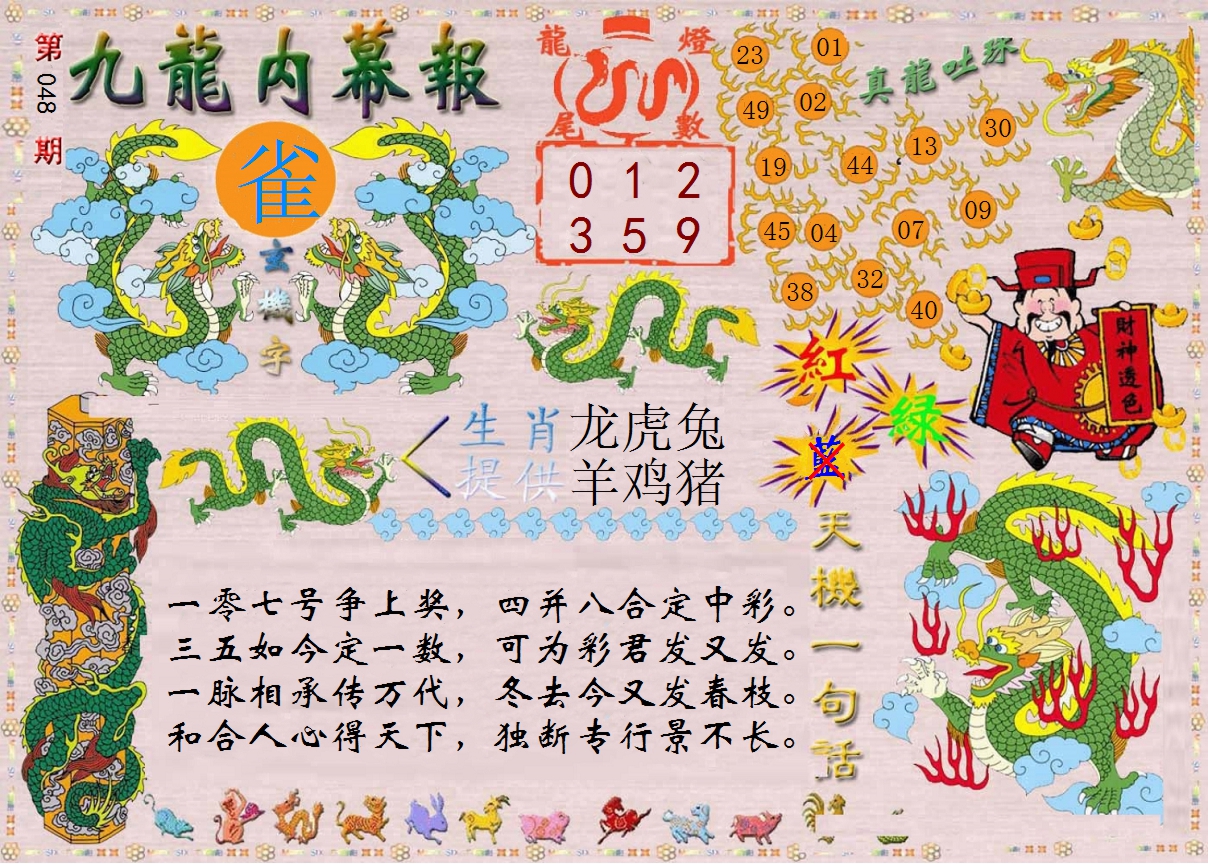 第048期
九龍内幕報
雀
玄機字
龍燈尾數
0 1 2
3 5 9
真龍吐珠
23 01
49 02
13 30
19 44
09
45 04 07
38 32
40
財神透色
紅
綠
藍
生肖提供
龙虎兔
羊鸡猪
天機一句話
一零七号争上奖，四并八合定中彩。
三五如今定一数，可为彩君发又发。
一脉相承传万代，冬去今又发春枝。
和合人心得天下，独断专行景不长。